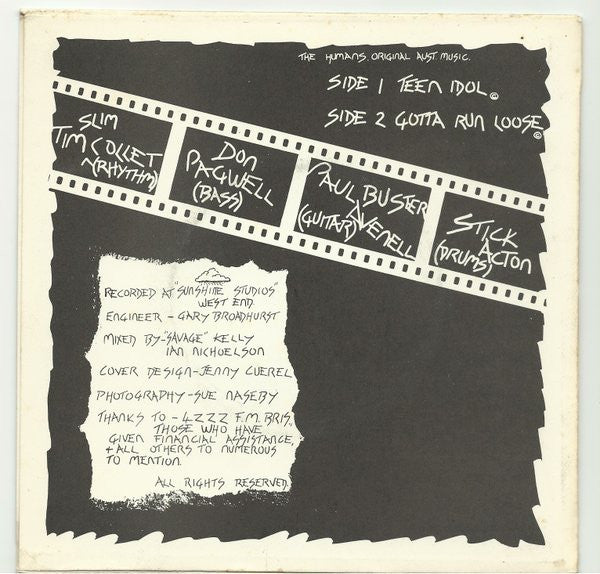 THE HUMANS ORIGINAL AUST. MUSIC.
SIDE 1 TEEN IDOL ©
SIDE 2 GOTTA RUN LOOSE ©
SLIM
TIM COLLET
(RHYTHM)
DON
PAGWELL
(BASS)
PAUL BUSTER
(GUITAR) AVENELL
STICK
ACTON
(DRUMS)
RECORDED AT "SUNSHINE STUDIOS"
WEST END
ENGINEER - GARY BROADHURST
MIXED BY - "SAVAGE" KELLY
IAN NICHOELSON
COVER DESIGN - JENNY CUEREL
PHOTOGRAPHY - SUE NASEBY
THANKS TO - 4ZZZ F.M. BRIS,
THOSE WHO HAVE
GIVEN FINANCIAL ASSISTANCE,
+ ALL OTHERS TO NUMEROUS
TO MENTION.
ALL RIGHTS RESERVED.